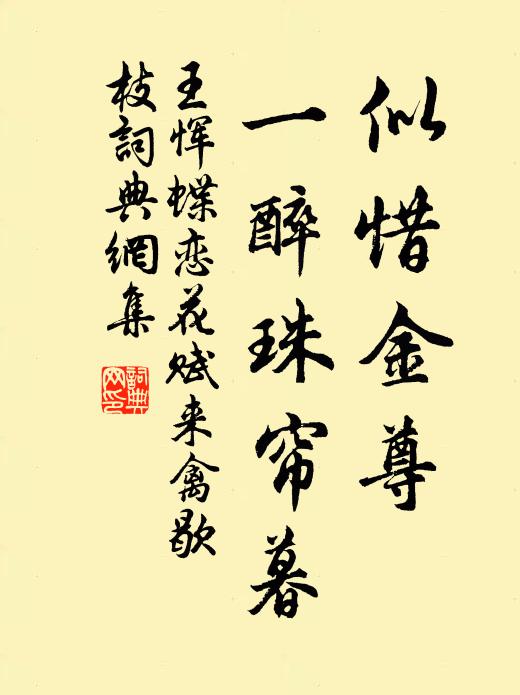 似惜金尊
一醉珠帘暮
王恽蝶恋花赋来禽歇
枝詞典網集
詞典网印